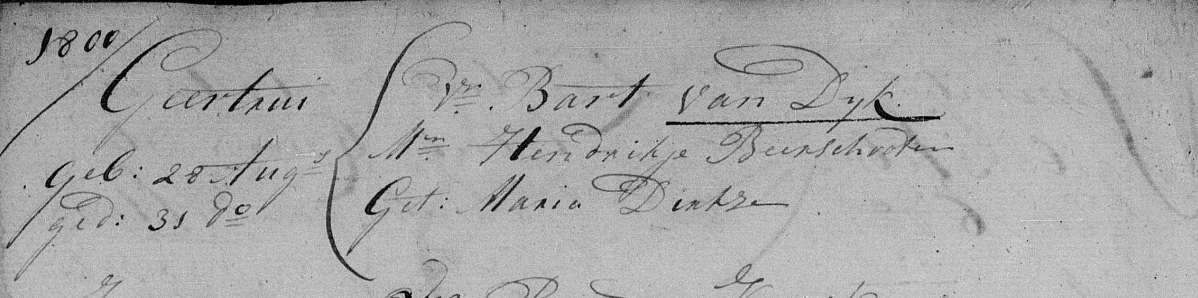 1800
Geertrui
geb: 28 Augs
ged: 31 do
Vr. Bart van Dyk.
Mr. Hendrikje Beerschooten
Get: Maria Dirkze